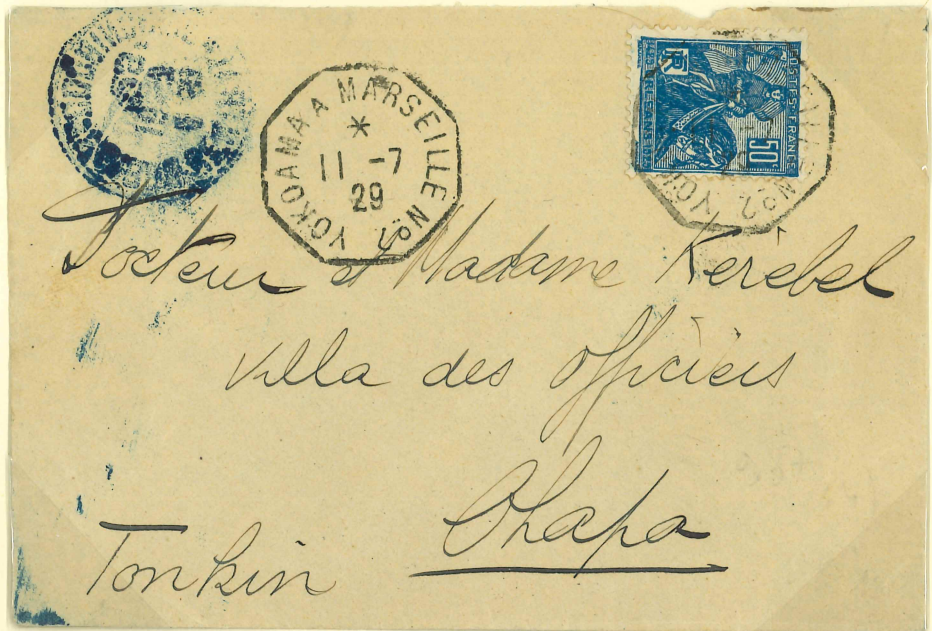 YOKOAMA A MARSEILLE Nº2
11 -7
29
POSTES FRANCE
RF
50c
YOK
Nº2
Docteur et Madame Kerebel
Villa des officiers
Chapa
Tonkin